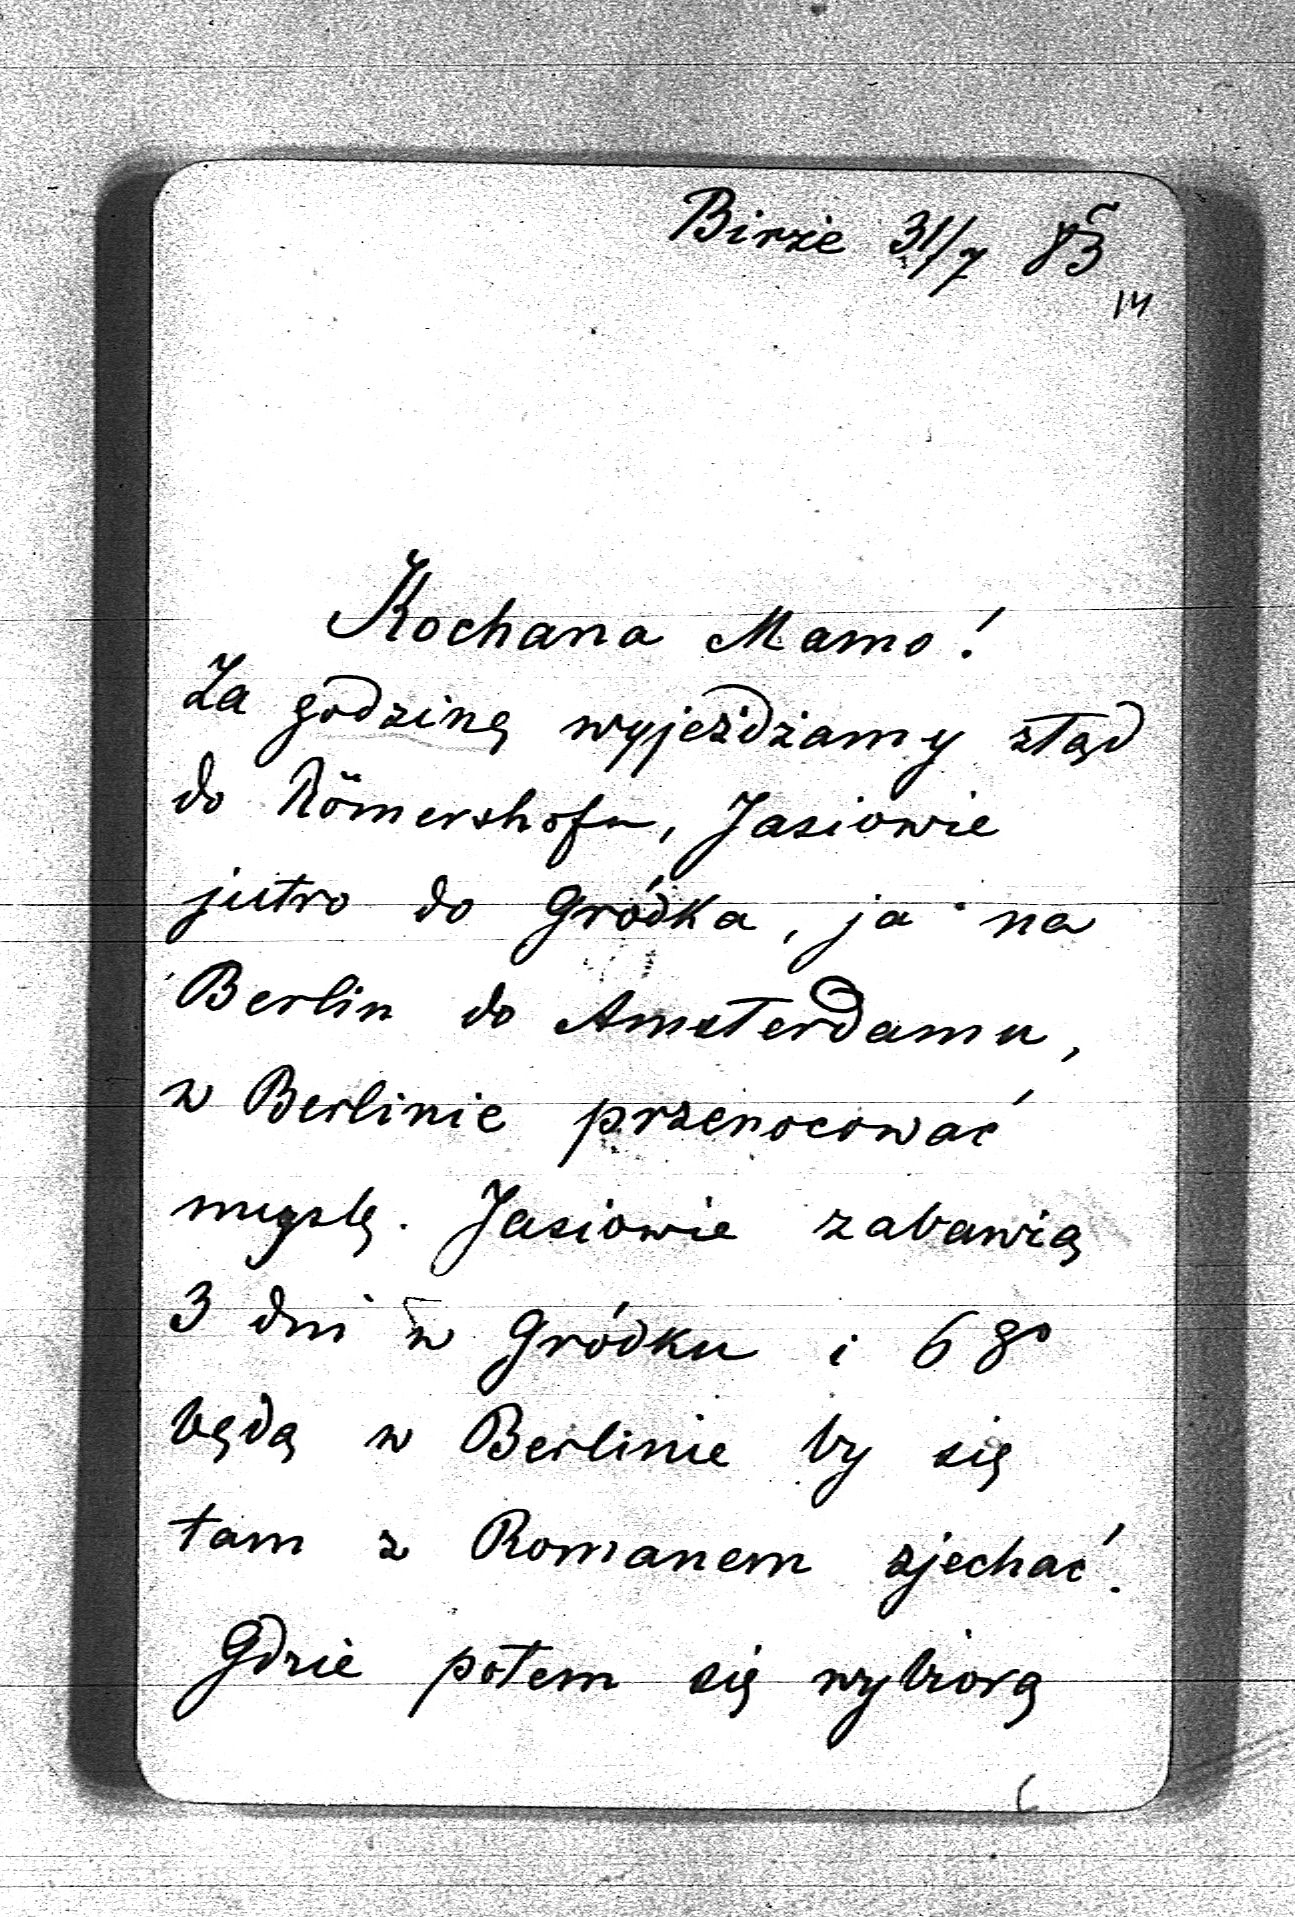 Birże 31/7 83
14
Kochana Mamo!
Za godzinę wyjeżdżamy ztąd
do Römershofu, Jasiowie
jutro do Gródka, ja na
Berlin do Amsterdamu,
w Berlinie przenocować
myślę. Jasiowie zabawią
3 dni w Gródku i 6 go
będą w Berlinie by się
tam z Romanem zjechać.
Gdzie potem się wybiorą